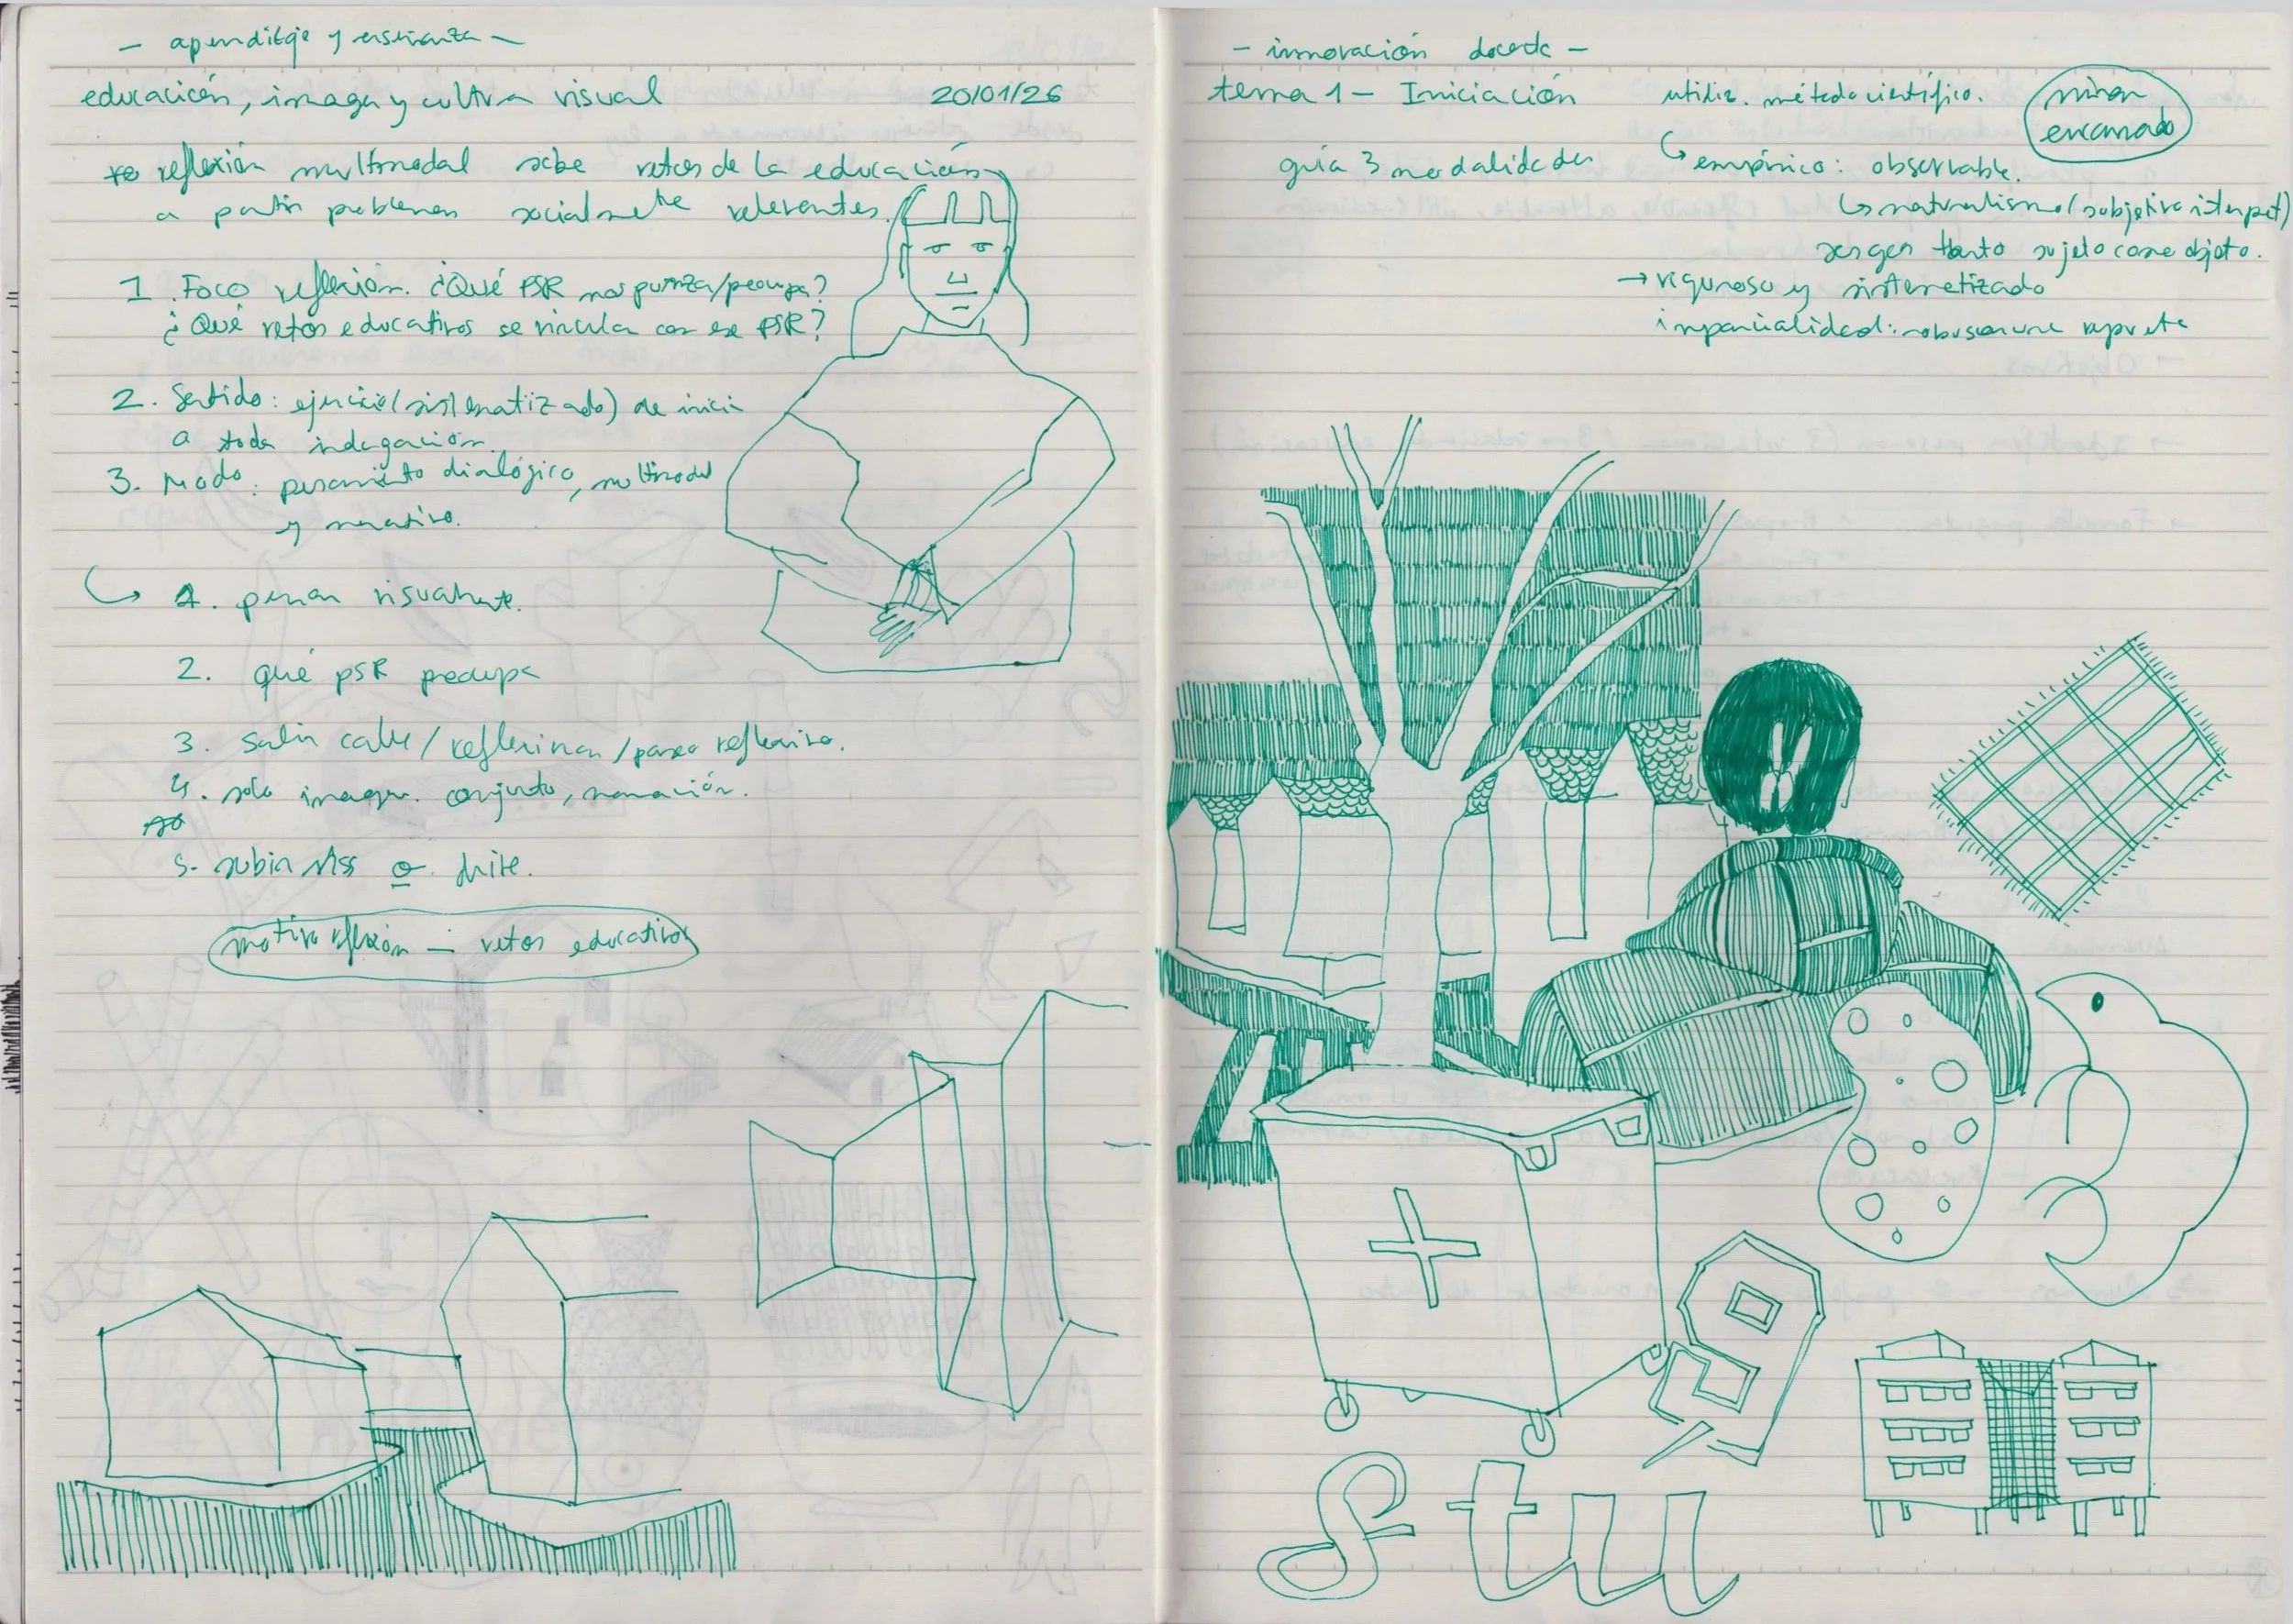 - apenditaje y enseñanza -
educación, imagen y cultura visual 20/01/26
reflexión multimodal sobe retos de la educación
a partir problemas socialmente relevantes.
1. Foco reflexión. ¿Qué PSR nos punza/preocupa?
¿Qué retos educativos se vincula con ese PSR?
2. Sentido: ejercicio (sistematizado) de inicio
a toda indagación.
3. Modo: pensamiento dialógico, multimodal
y narrativo.
↳ 1. pensar visualmente.
2. qué PSR preocupa
3. salir calle / reflexionar / paseo reflexivo.
4. solo imagen. conjunto, narración.
5. subir Mss o drive.
motivo reflexión — retos educativos
- innovación docente -
tema 1 - Iniciación
guía 3 modalidades
utiliz. método científico.
↳ empírico: observable.
↳ naturalismo (subjetivo interpret)
sesgos tanto sujeto como objeto.
→ riguroso y sistematizado
imparcialidad: no buscar una
mirar
encarnado
stu